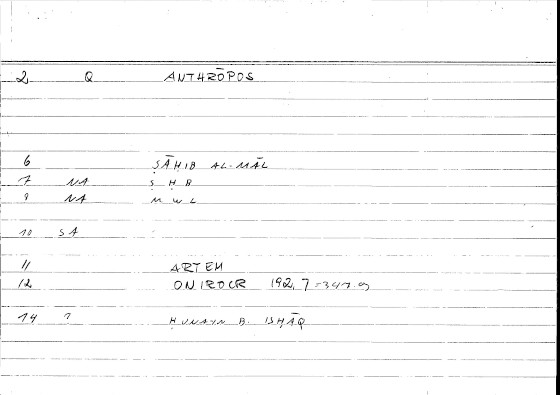 2 Q ANTHRŌPOS
6 ṢĀḤIB AL-MĀL
7 NA Ṣ Ḥ B
8 NA M W L
10 SA
11 ARTEM
12 ONIROCR 192,7
14 ? ḤUNAYN B. ISḤĀQ